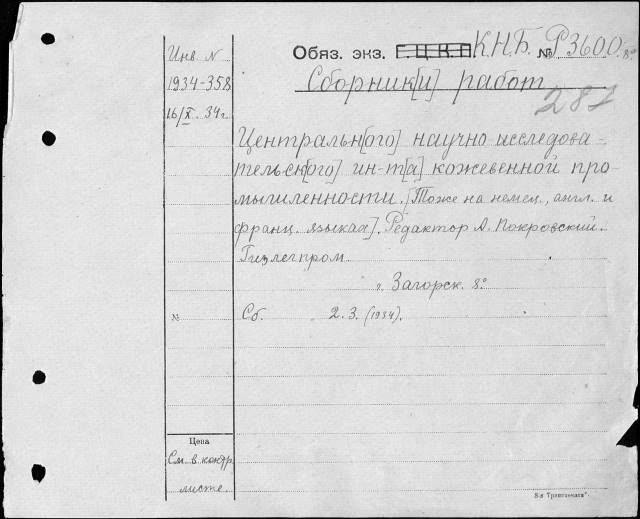 Инв. N
1934-358
16/X. 34г.
Обяз. экз. Г.Ц.К.П. К.Н.Б. № Р3600. 8°
Сборник[и] работ
287
Центральн[ого] научно-исследова-
тельск[ого] ин-т[а] кожевенной про-
мышленности. [Тоже на немец., англ. и
франц. языках]. Редактор А. Покровский.
Гизлегпром
г. Загорск. 8°
№
Сб. 2.3. (1934).
Цена
См. в контр.
листе.